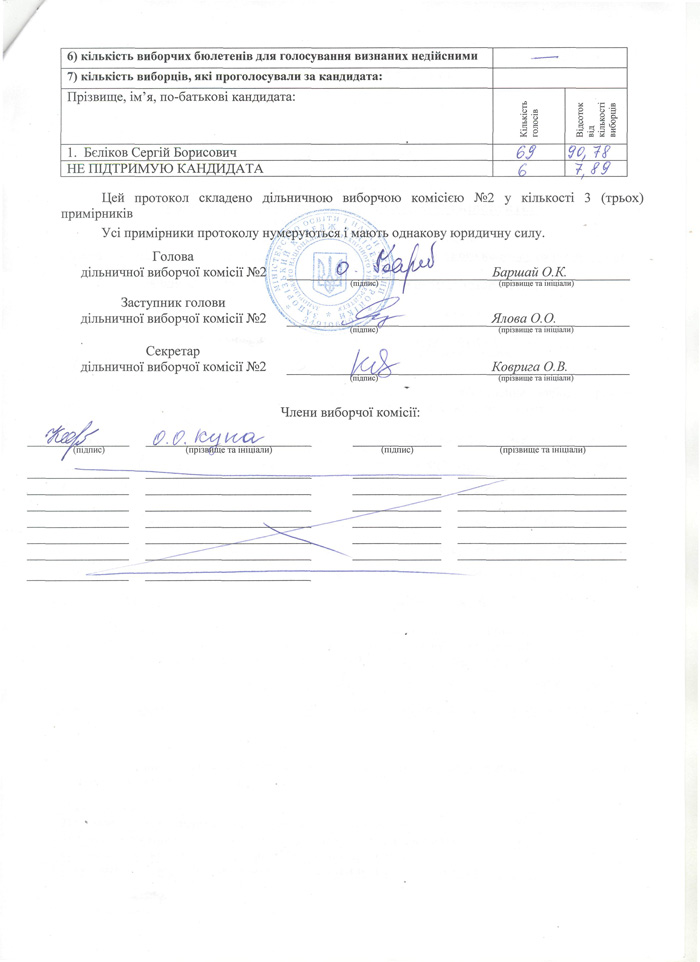 6) кількість виборчих бюлетенів для голосування визнаних недійсними —
7) кількість виборців, які проголосували за кандидата:
Прізвище, ім’я, по-батькові кандидата:
Кількість голосів
Відсоток від кількості виборців
1. Бєліков Сергій Борисович 69 90,78
НЕ ПІДТРИМУЮ КАНДИДАТА 6 7,89
Цей протокол складено дільничною виборчою комісією №2 у кількості 3 (трьох)
примірників
Усі примірники протоколу нумеруються і мають однакову юридичну силу.
Голова
дільничної виборчої комісії №2 Баршай О.К.
(підпис) (прізвище та ініціали)
Заступник голови
дільничної виборчої комісії №2 Ялова О.О.
(підпис) (прізвище та ініціали)
Секретар
дільничної виборчої комісії №2 Коврига О.В.
(підпис) (прізвище та ініціали)
Члени виборчої комісії:
О.О. Купа
(підпис) (прізвище та ініціали) (підпис) (прізвище та ініціали)